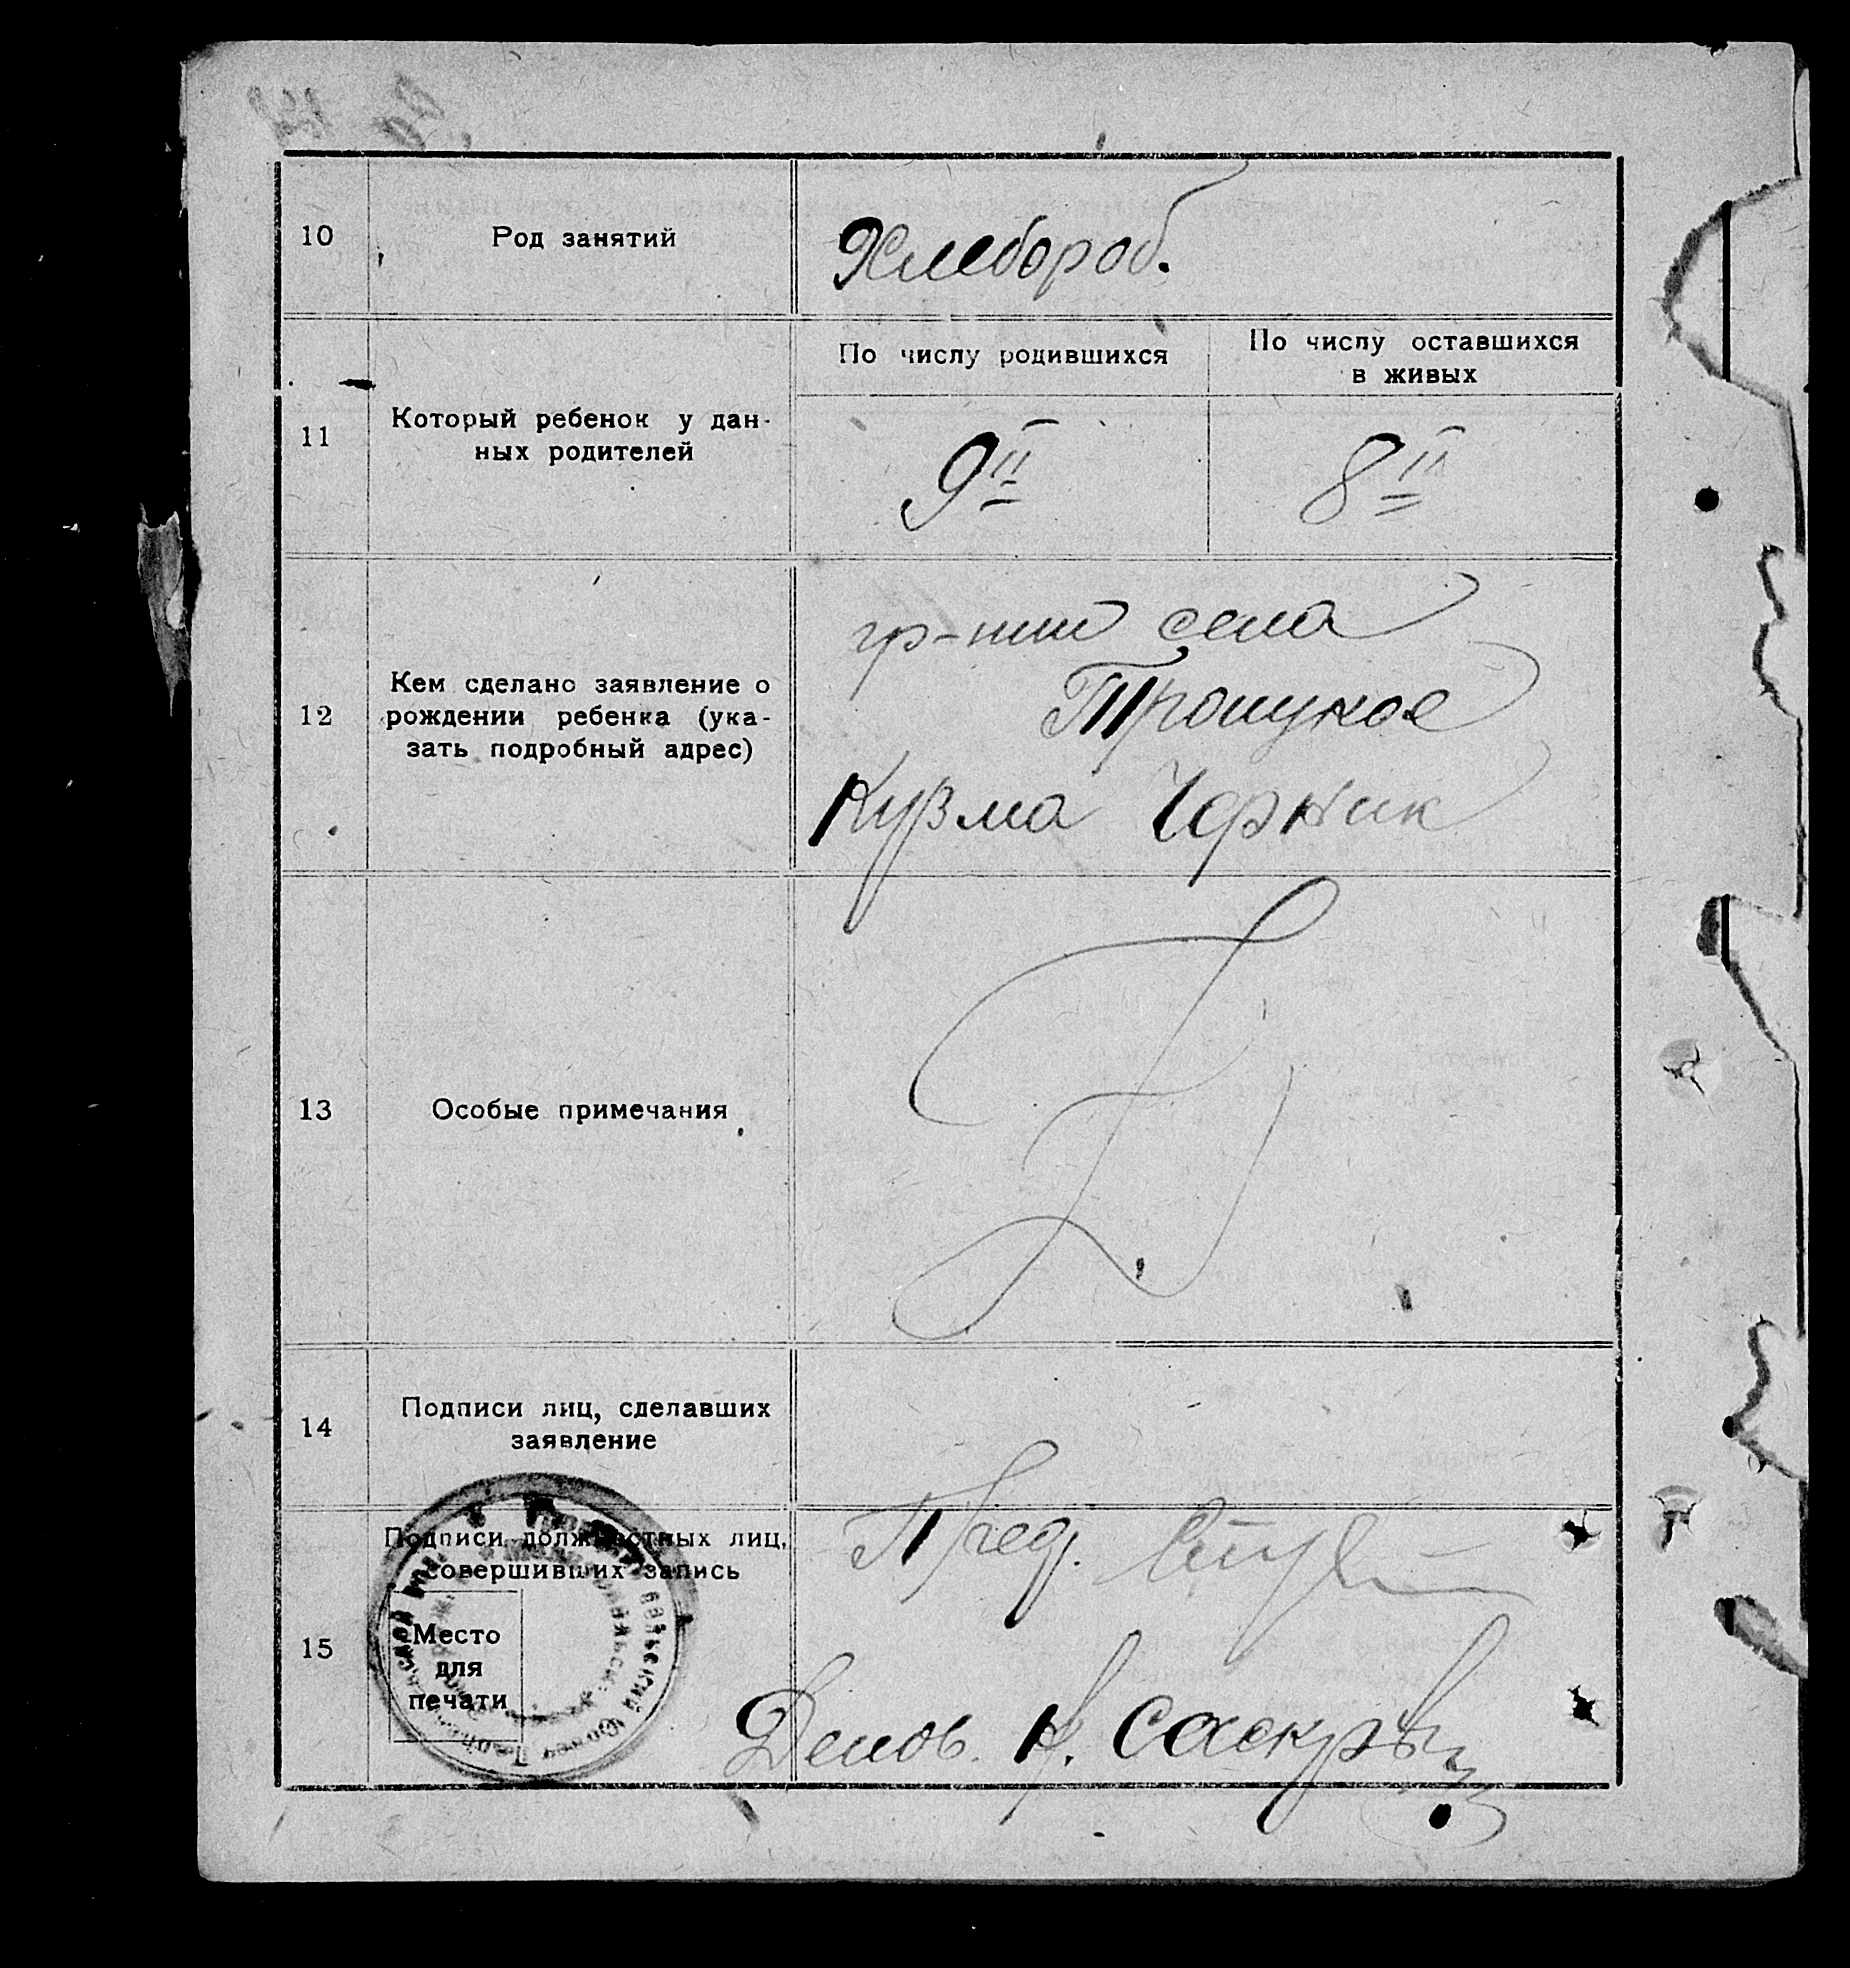 10
Род занятий
Хлебороб.
11
Который ребенок у дан-
ных родителей
По числу родившихся
По числу оставшихся
в живых
9й
8й
12
Кем сделано заявление о
рождении ребенка (ука-
зать подробный адрес)
гр-нин села
Кузма Черник
13
Особые примечания
14
Подписи лиц, сделавших
заявление
15
Подписи должностных лиц,
совершивших запись
Место
для
печати
Пред.
Делов. К.